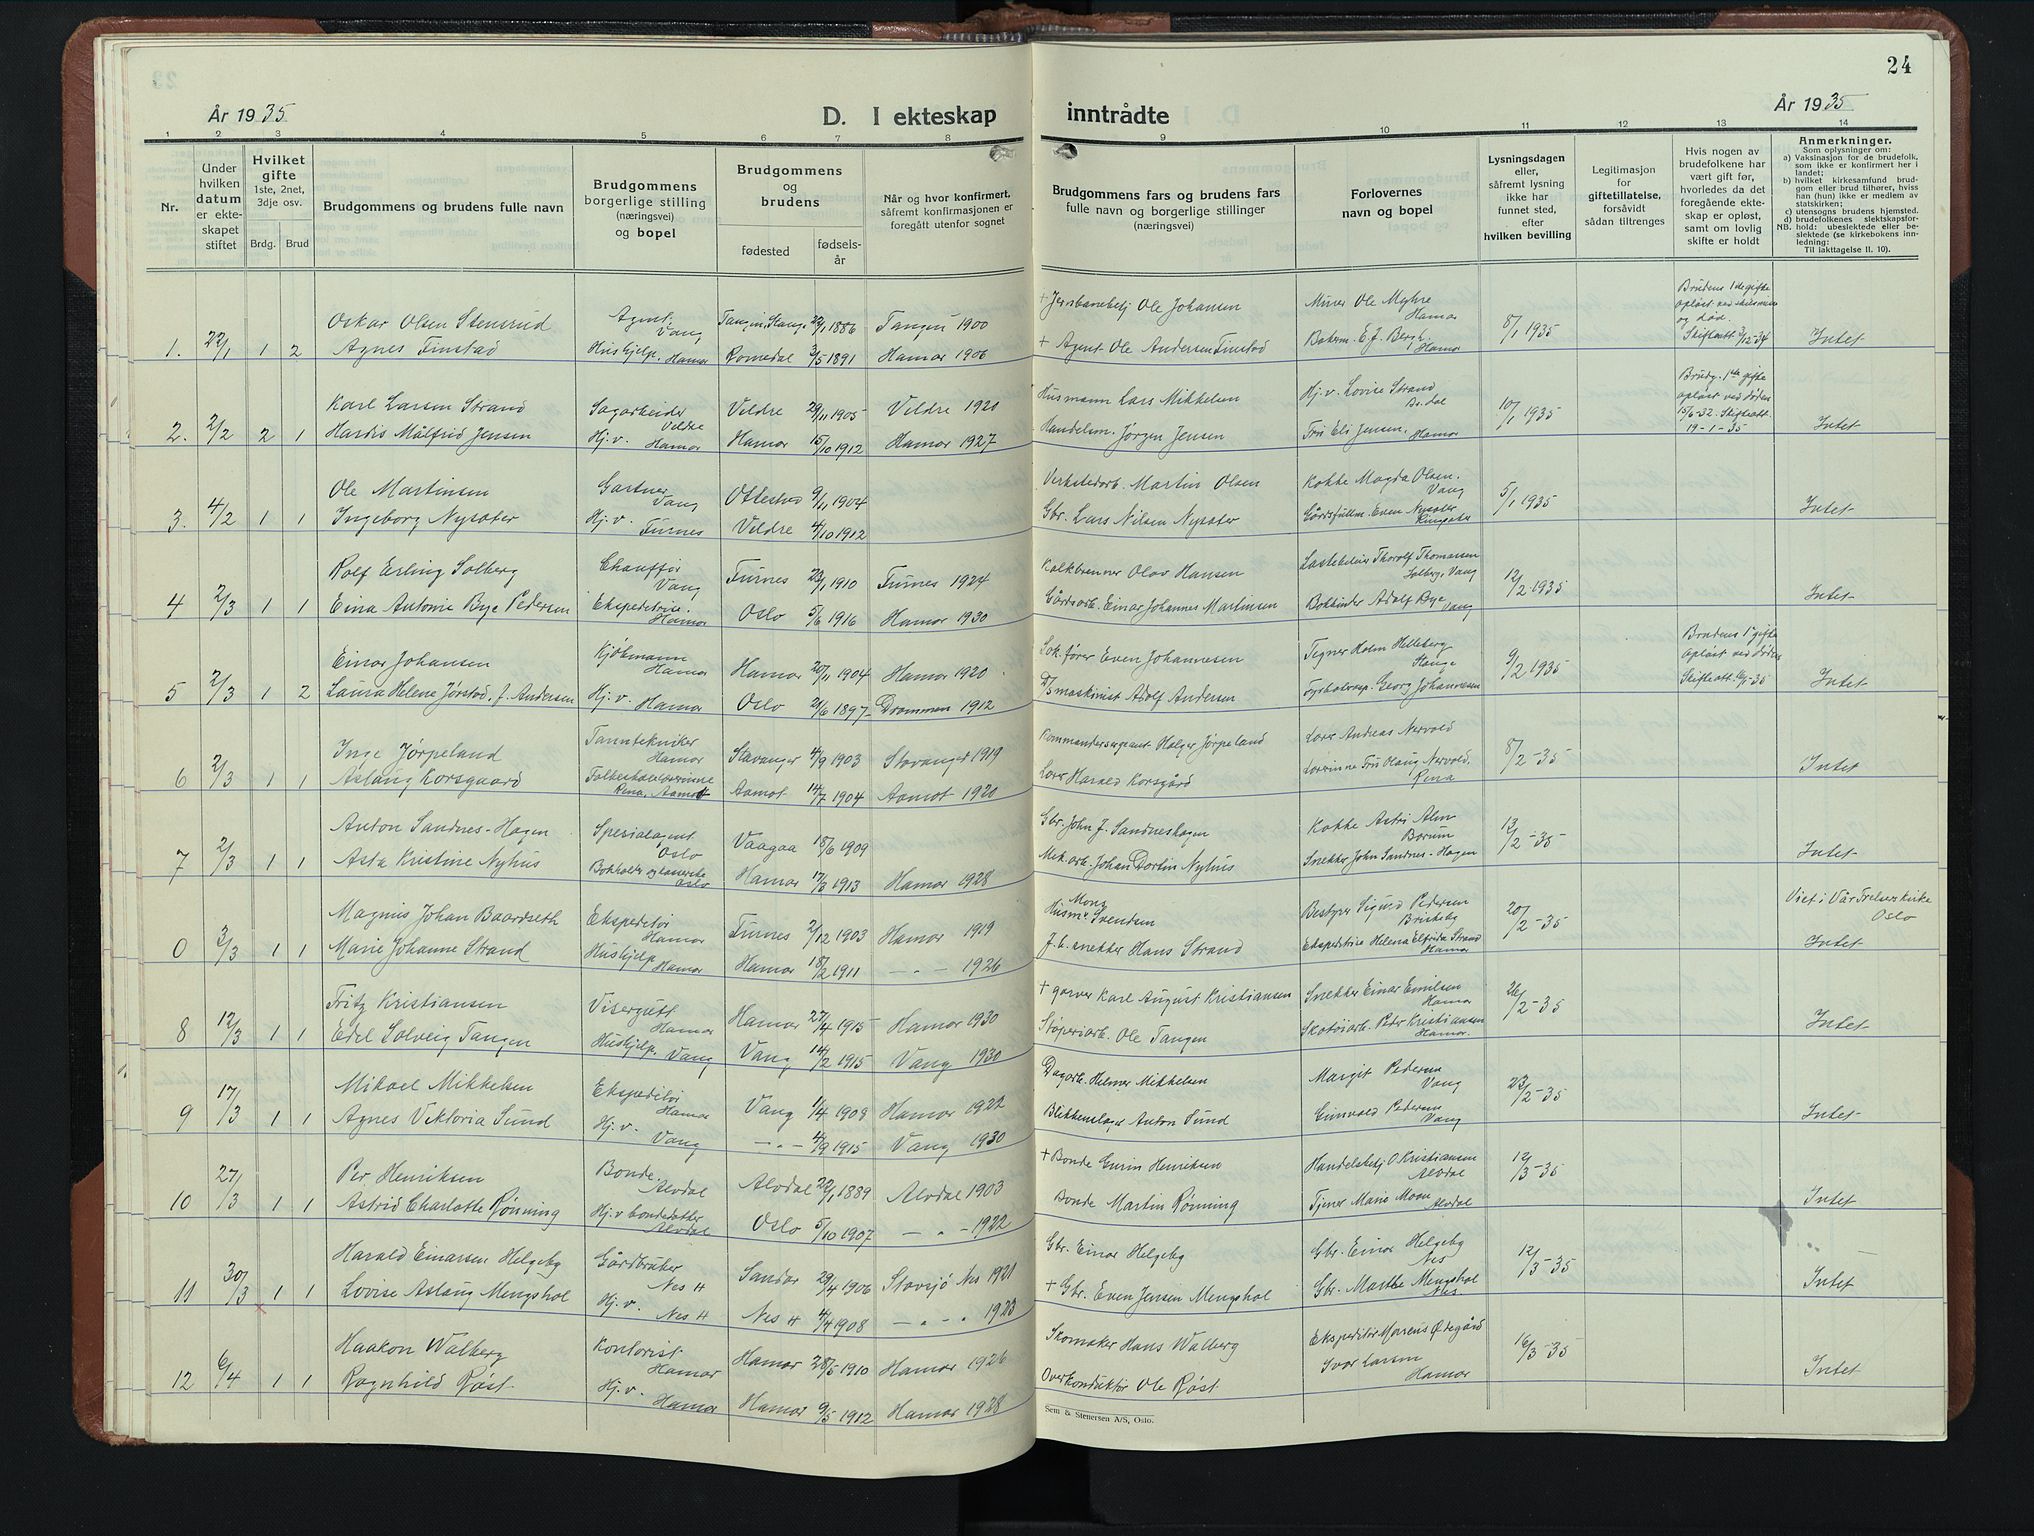 24
År 1935
D. I ekteskap
inntrådte
År 1935
1 2 3 4 5 6 7 8 9 10 11 12 13 14
Nr.
Under hvilken datum er ekteskapet stiftet
Hvilket gifte 1ste, 2net, 3dje osv.
Brdg. Brud
Brudgommens og brudens fulle navn
Brudgommens borgerlige stilling (næringsvei) og bopel
Brudgommens og brudens
fødested
fødselsår
Når og hvor konfirmert, såfremt konfirmasjonen er foregått utenfor sognet
Brudgommens fars og brudens fars fulle navn og borgerlige stillinger (næringsvei)
Forlovernes navn og bopel
Lysningsdagen eller, såfremt lysning ikke har funnet sted, efter hvilken bevilling
Legitimasjon for giftetillatelse, forsåvidt sådan tiltrenges
Hvis nogen av brudefolkene har vært gift før, hvorledes da det foregående ekteskap er opløst, samt om lovlig skifte er holdt
Anmerkninger.
Som oplysninger om:
a) Vaksinasjon for de brudefolk, som ikke er konfirmert her i landet;
b) hvilket kirkesamfund brudgom eller brud tilhører, hviss han (hun) ikke er medlem av statskirken;
c) utensogns brudens hjemsted.
d) brudefolkenes slektskapsforhold: ubeslektede eller beslektede (se kirkebokens innledning:
NB.
Til Iakttagelse II. 10).
1. 22/1 1 2
Oskar Olsen Stensrud Agent. Vang Tangen, Stange 22/1 1886 Tangen 1900 + Jernbanebetj Ole Johansen Murer Ole Myhre Hamar 8/1 1935 Brudens 1ste gifte opløst ved skilsmisse og død. Skifteatt 3/12-34
Agnes Finstad Hushjelp. Hamar Romedal 3/5 1891 Hamar 1906 + Agent Ole Andersen Finstad Bokerm. E. J. Bergh. Hamar Intet
2. 2/2 2 1
Karl Larsen Strand Sagarbeider Veldre Veldre 29/11 1905 Veldre 1920 Husmann Lars Mikkelsen Hj.v. Lovise Strand Br.dal 10/1 1935 Brudg. 1ste gifte opløst ved døden 15/6-32. Skifteatt. 19-1-35
Hardis Målfrid Jensen Hj.v. Hamar Hamar 15/10 1912 Hamar 1927 Handelsm. Jørgen Jensen Fru Eli Jensen, Hamar Intet
3. 4/2 1 1
Ole Martinsen Gartner Vang Ottestad 9/11 1904 Verkstedarb. Martin Olsen Kokke Magda Olsen. Vang 5/1 1935
Ingeborg Nysæter Hj.v. Furnes Veldre 4/10 1912 Gbr. Lars Nilsen Nysæter Gårdsfullm. Even Nysæter Ringsaker Intet
4 2/3 1 1
Rolf Erling Solberg Chauffør Vang Furnes 23/1 1910 Furnes 1924 Kalkbrenner Olav Hansen Lastebileier Thorolf Thomassen Solberg, Vang 12/2-1935
Eina Antonie Bye Pedersen Ekspeditrise. Hamar Oslo 5/6 1916 Hamar 1930 Gårdsarb. Einar Johannes Martinsen Bokbinder Adolf Bye Vang Intet
5 2/3 1 2
Einar Johansen Kjøbmann Hamar Hamar 20/11 1904 Hamar 1920 Sak.fører Even Johannesen Tegner Helleberg Stange 9/2 1935 Brudens 1ste gifte opløst ved døden Skifteatt 10/1-35
Laura Helene Jørstad, f. Andersen Hj.v. Hamar Oslo 21/6 1897 Drammen 1912 D/S maskinist Adolf Andersen Georg Johannesen Intet
6 2/3 1 1
Inge Jørpeland Tanntekniker Hamar Stavanger 4/9 1903 Stavanger 1919 Kommandersergeant Holger Jørpeland Lærer Andreas Nervold 8/2-35
Aslaug Korsgaard Rena, Aamot Aamot 14/7 1904 Aamot 1920 Lærer Harald Korsgård Lærerinne Fru Olaug Nervold, Rena Intet
7 2/3 1 1
Anton Sandnes-Hagen Spesialagent Oslo Vaagaa 18/6 1909 Gbr. John J. Sandneshagen Kokke Astri Alm Bærum 13/2-35
Asta Kristine Nyhus Oslo Hamar 17/3 1913 Hamar 1928 Mek.arb. Johan Dortin Nyhus Snekker John Sandnes-Hagen Intet
0 3/3 1 1
Magnus Johan Baardseth Ekspeditør Hamar Furnes 2/12 1903 Hamar 1919 Husm. Mons Svendsen Bestyrer Sigurd Pedersen Briskeby 20/2-35 Viet i Vår Frelsers kirke Oslo
Marie Johanne Strand Hushjelp Hamar Hamar 18/2 1911 — „ — 1926 J.b. snekker Hans Strand Ekspeditrise Helena Elfrida Strand Hamar Intet
8 12/3 1 1
Fritz Kristiansen Visergutt Hamar Hamar 27/4 1915 Hamar 1930 + garver Karl August Kristiansen Snekker Einar Emilsen Hamar 26/2-35
Edel Solveig Tangen Hushjelp. Vang Vang 14/2 1915 Vang 1930 Støperiarb. Ole Tangen Skotøiarb. Peder Kristiansen Hamar. Intet
9 17/3 1 1
Mikael Mikkelsen Ekspeditør Hamar Vang 1/4 1908 Hamar 1922 Dagarb. Helmer Mikkelsen Margit Pedersen Vang 23/2-35
Agnes Viktoria Sund Hj.v. Vang — „ — 4/9 1915 Vang 1930 Blikkenslager Anton Sund Gunvald Pedersen Vang Intet
10 27/3 1 1
Per Henriksen Bonde Alvdal Alvdal 22/1 1889 Alvdal 1903 + Bonde Henriksen Handelsbetj O Kristiansen Alvdal 12/3-35
Astrid Charlotte Rønning Hj.v bondedatter Alvdal Oslo 5/10 1907 — „ — 1922 Bonde Martin Rønning Tjener Marie Moan Alvdal Intet
11 30/3 1 1
Harald Einarsen Helgeby Gårdbruker Nes H Sandar 29/4 1906 Stavsjø Nes 1921 Gbr. Einar Helgeby Gbr. Einar Helgeby Nes 12/3-35
Lovise Aslaug Mengshol Hj.v. Nes H Nes H 4/4 1908 — „ — „ 1923 + Gbr. Even Jensen Mengshol Gbr. Marthe Mengshol Nes Intet
12 6/4 1 1
Haakon Walberg Kontorist Hamar Hamar 28/5 1910 Hamar 1926 Skomaker Hans Walberg Ekspeditør Ødegård 16/3-35
Ragnhild Røst Hj.v. Hamar Hamar 9/5 1912 Hamar 1928 Overkonduktør Ole Røst Ivar Larsen Hamar Intet
Sem & Stenersen A/S, Oslo.